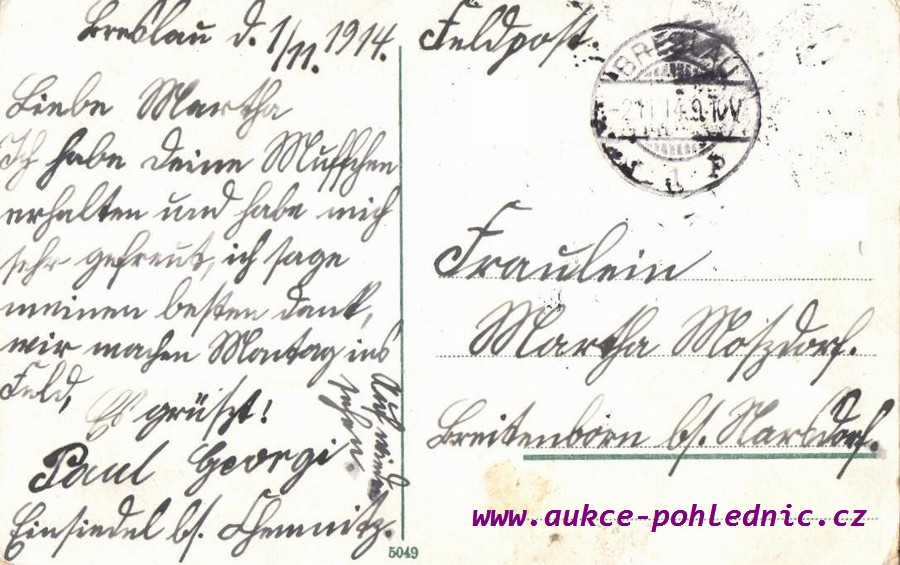 Breslau d. 1/11. 1914.
Liebe Martha
Ich habe deine Muffchen
erhalten und habe mich
sehr gefreut, ich sage
meinen besten Dank,
wir machen Montag ins
Feld,
Es grüszt!
Paul Georgi
Einsiedel b/. Chemnitz.
Auf wieder
sehen.
5049
Feldpost.
BRESLAU
Fräulein
Martha Moszdorf.
Breitenborn b/. Narsdorf.
www.aukce-pohlednic.cz